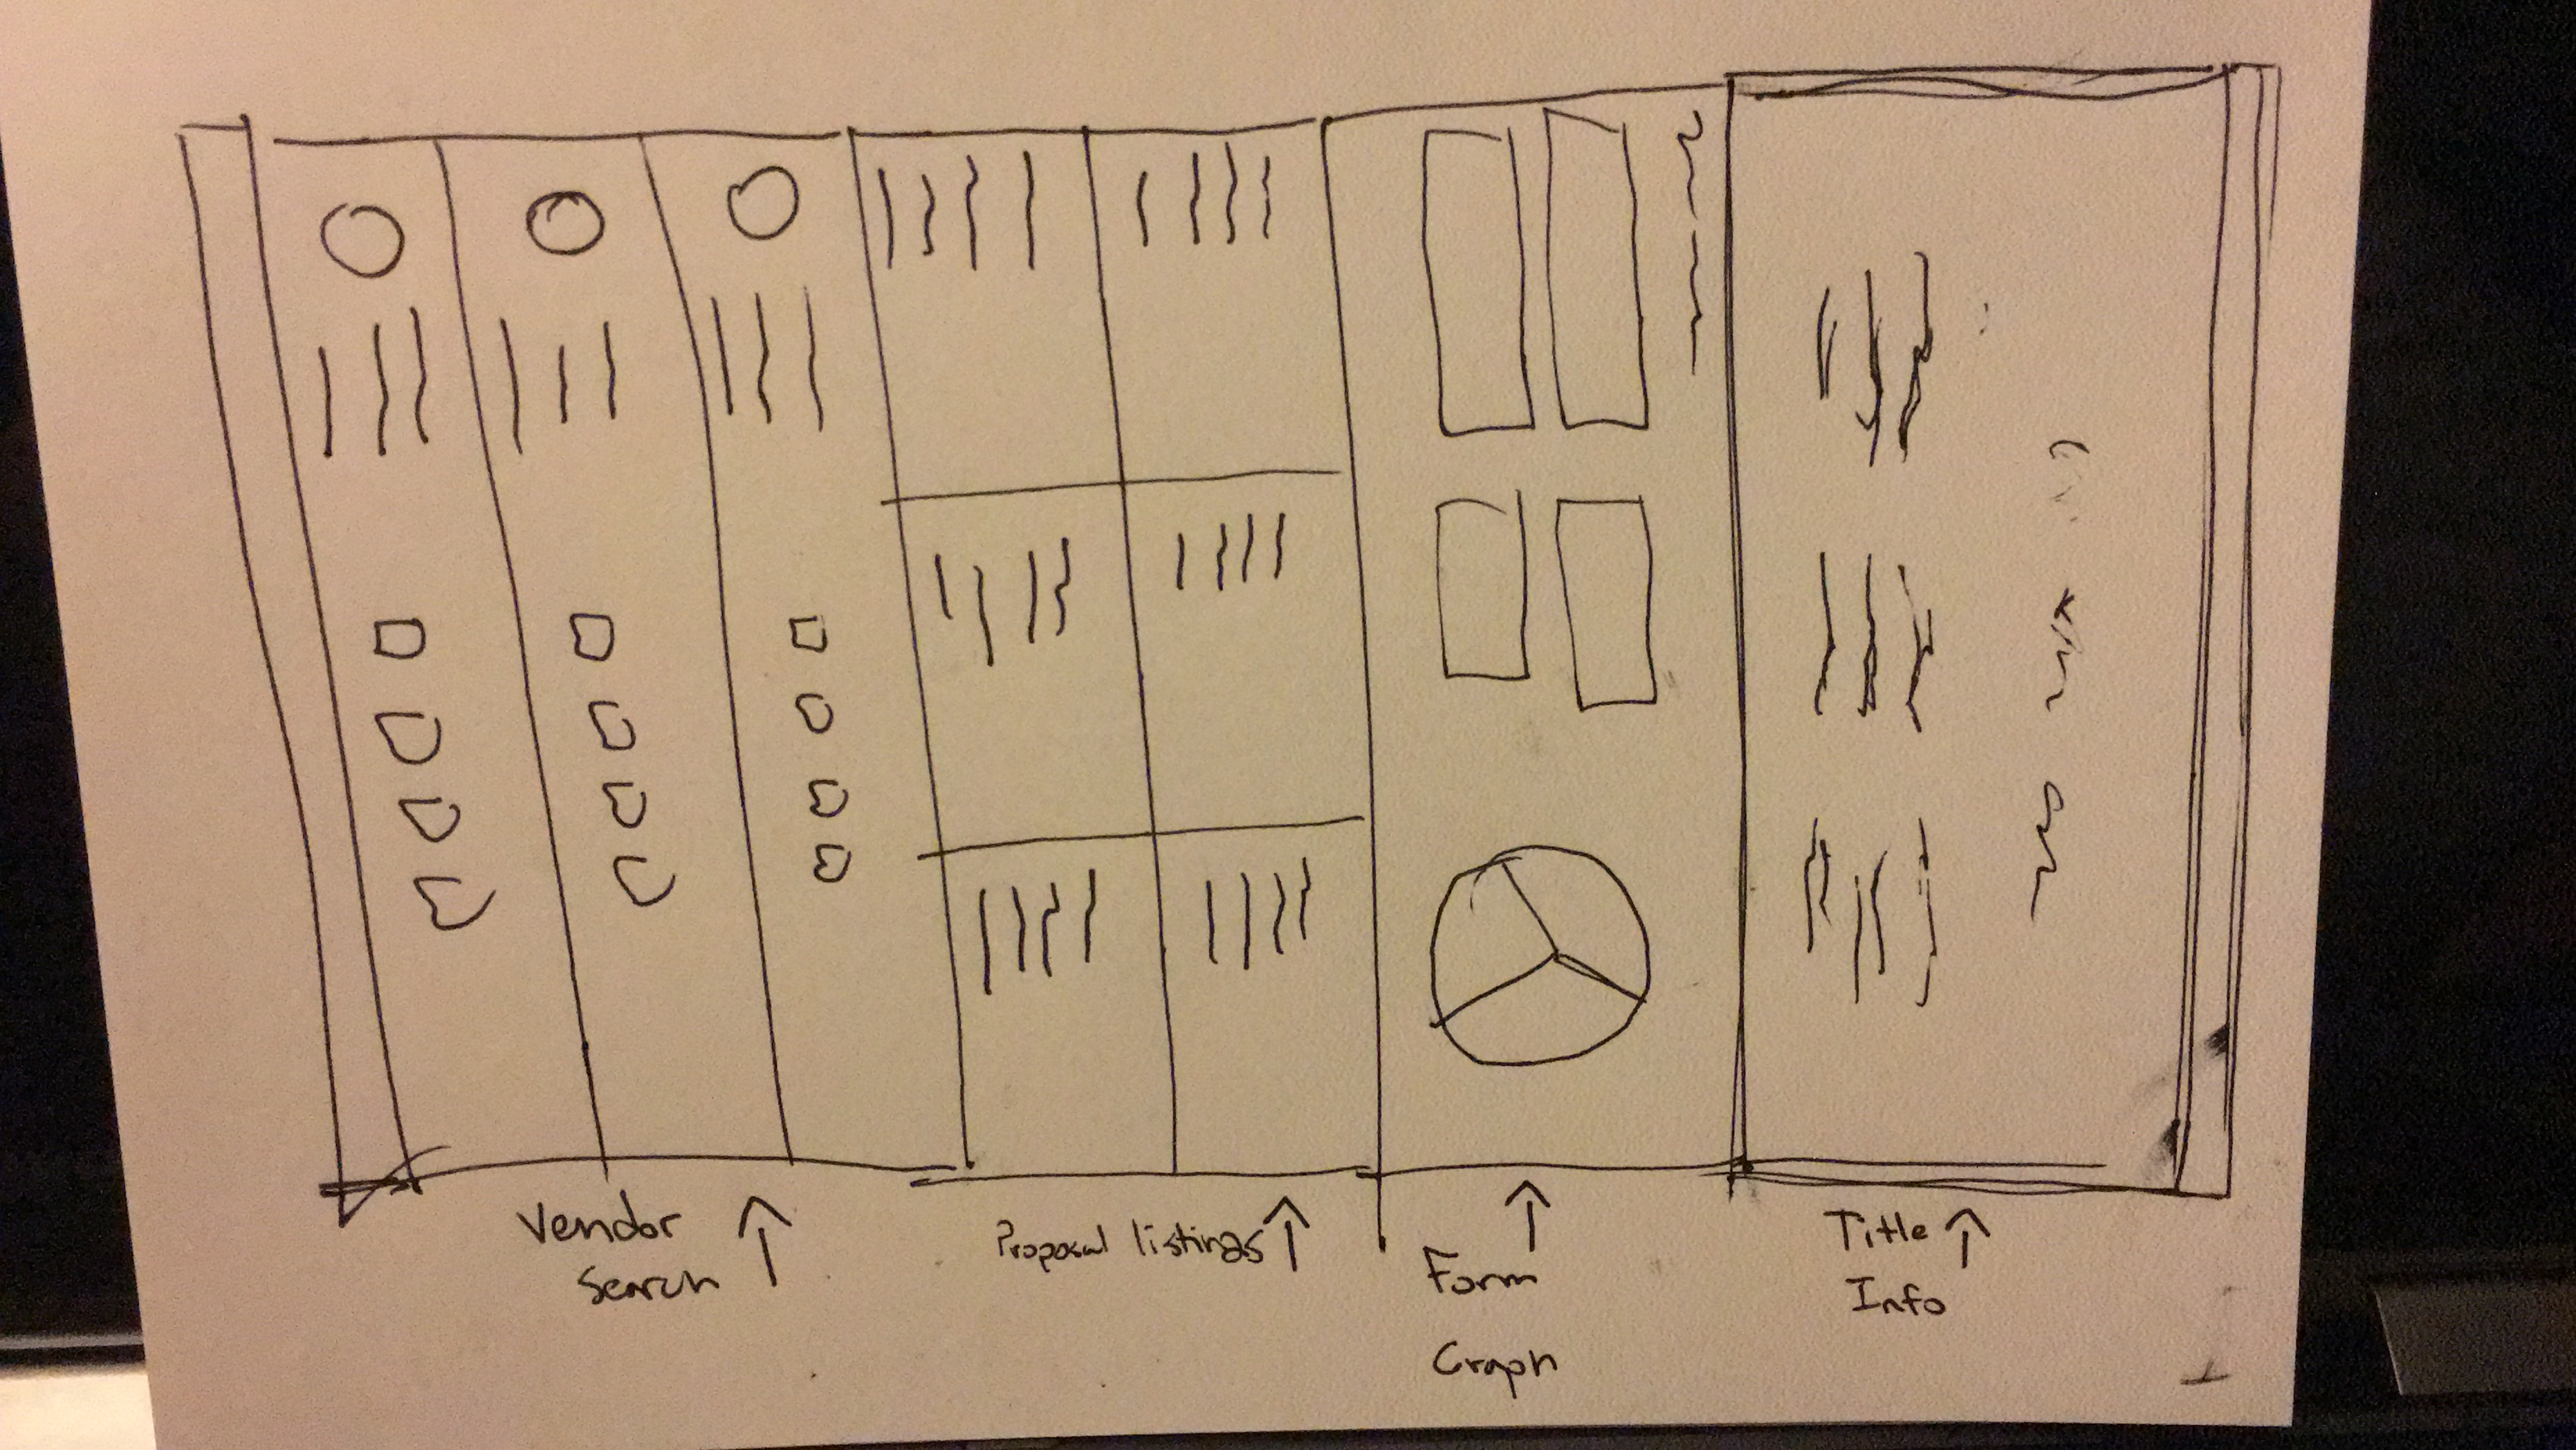 Vendor
Search
Proposal listings
Form
Graph
Title
Info